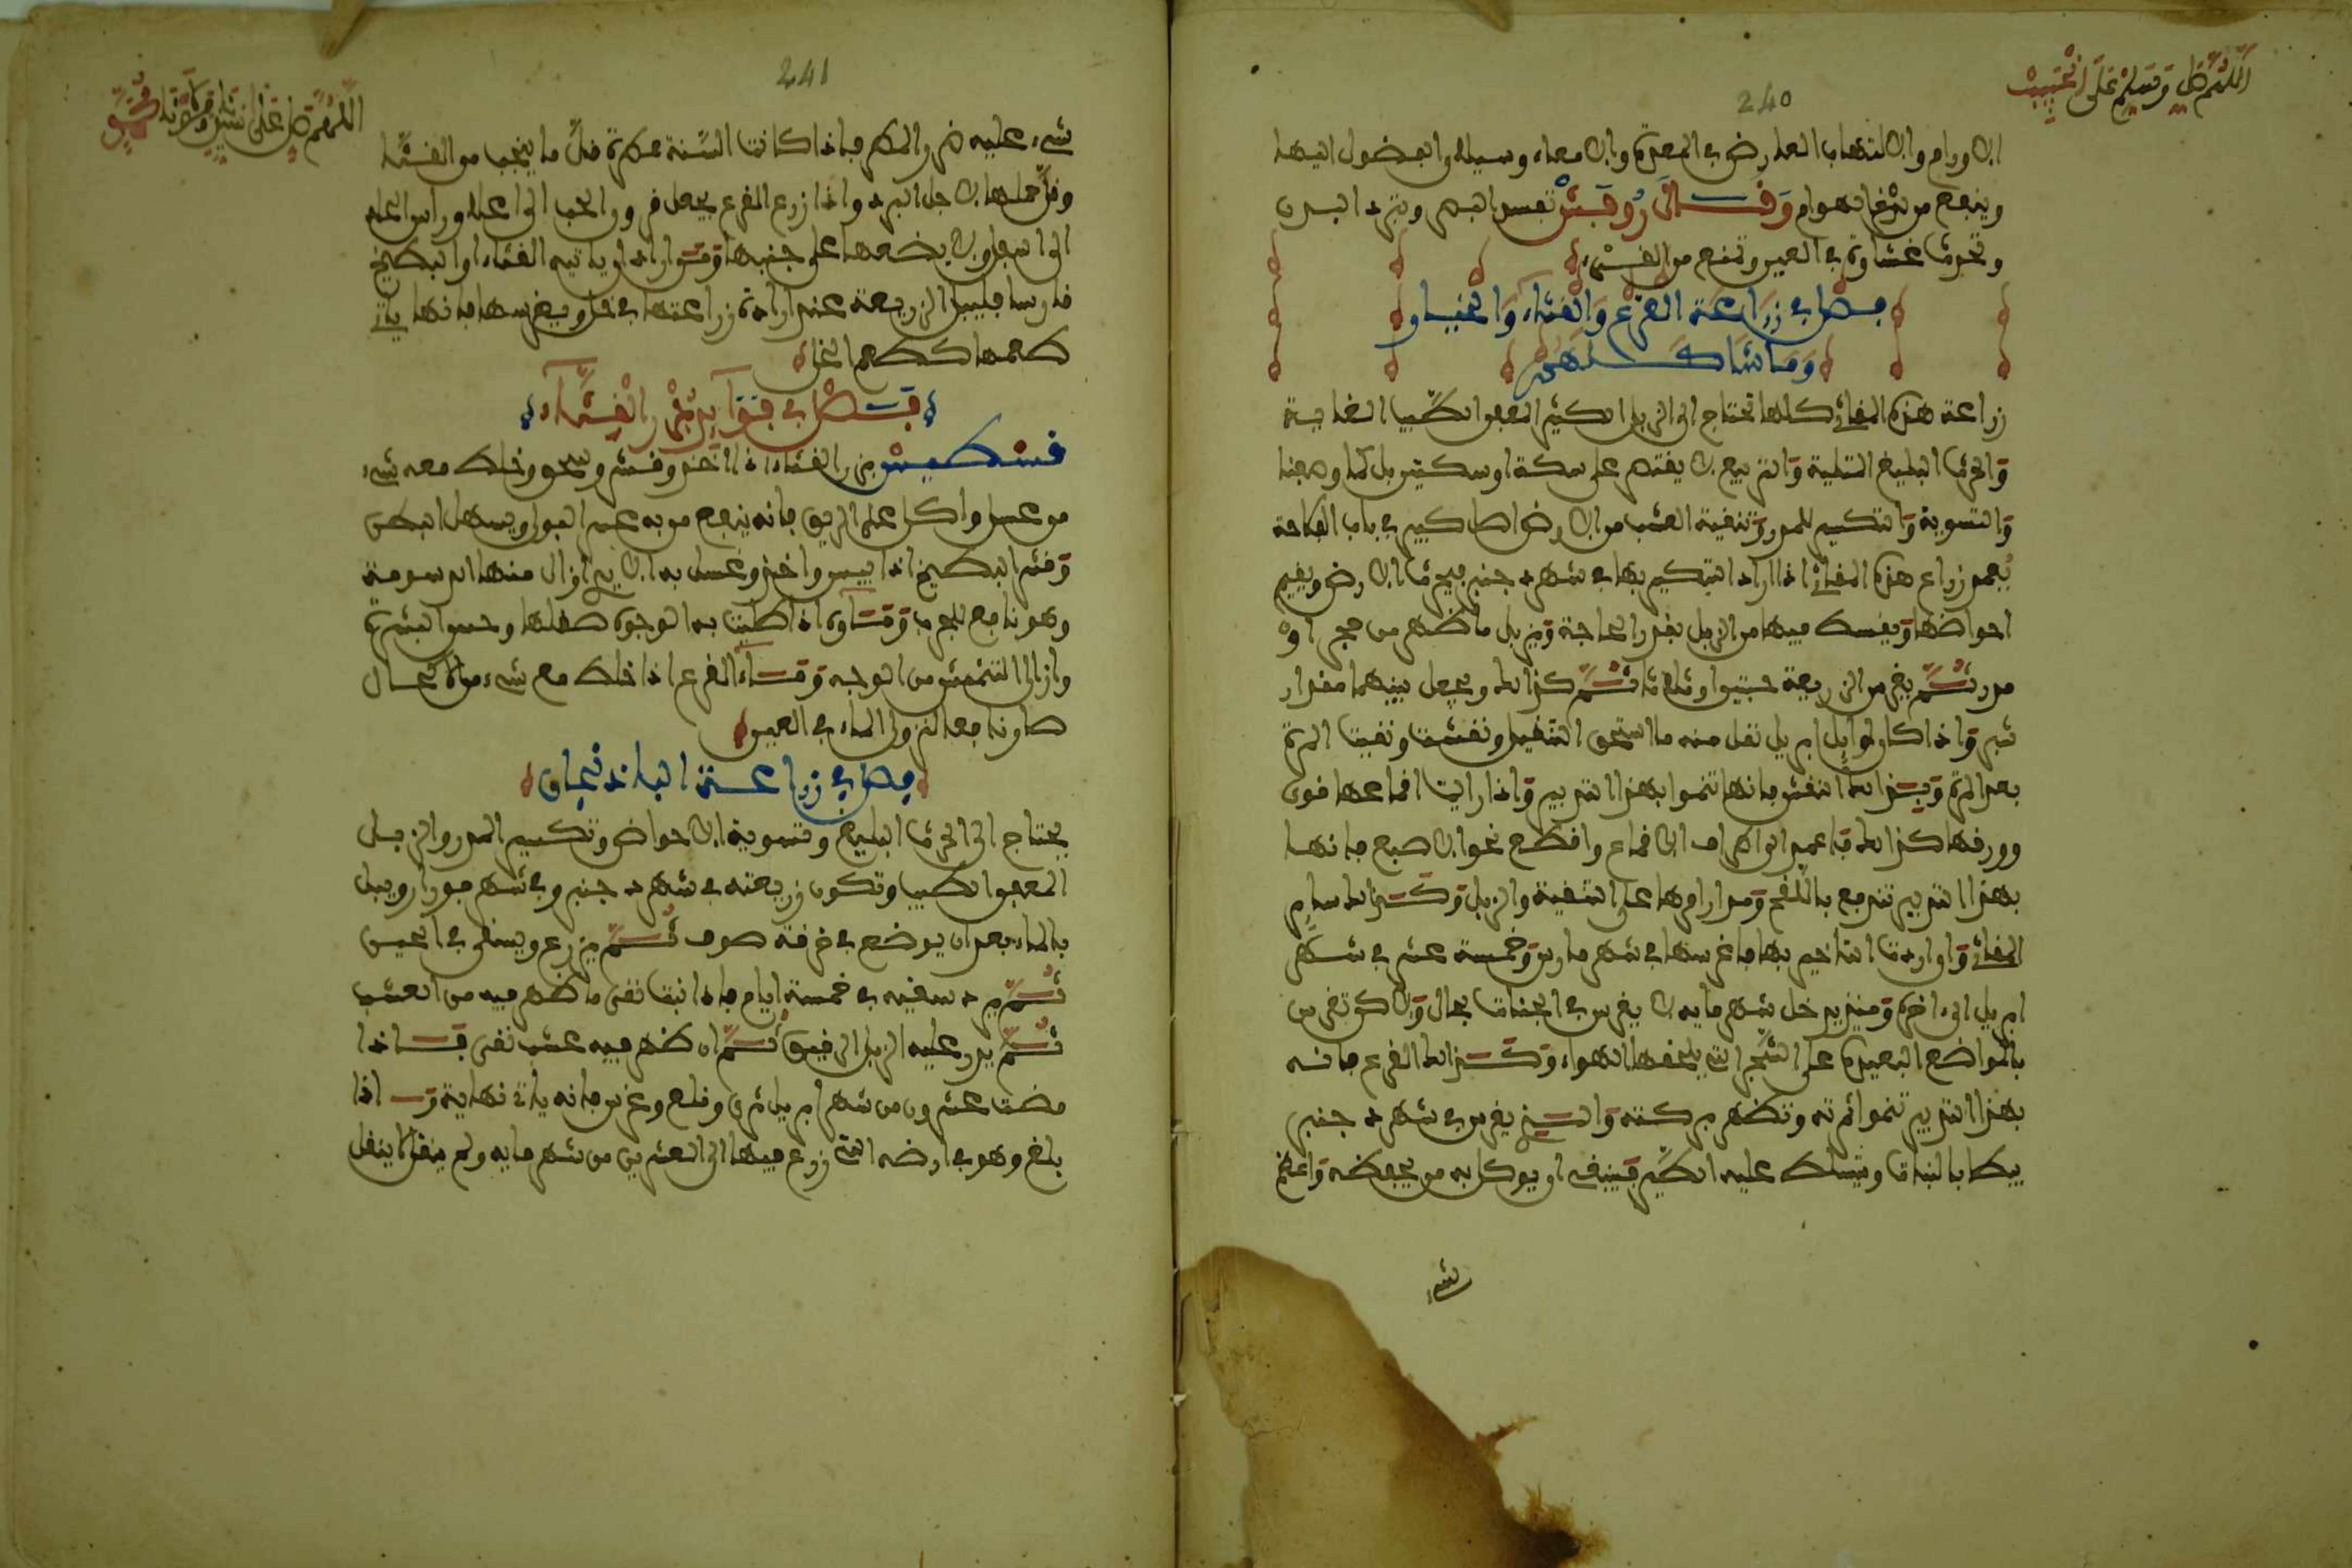 اللهم صل وسلم على الحبيب
240
الاورام والالتهاب العارض في المعدة والامعاء وسيلان الفضول اليها
وينفع من لدغ الهوام وقال روفس تفسد الهضم وتبرد البدن
وتحدث غشاوة في العين وتمنع من القيء
فصل في زراعة القرع والقثاء والخيار
وما شاكلهن
زراعة هذه المقاثئ كلها تحتاج الى الزبل الكثير المعفن الطيب الغاية
والحرث البليغ التثنية والتربيع لا يقتصر على سكة او سكتين بل كما وصفنا
والتسوية والتكسير للمدر وتنقية العشب من الارض اصل كبير في باب الفلاحة
يعمد زراع هذه المقاثئ اذا اراد التبكير بها في شهر دجنبر فيحرث الارض ويقيم
احواضها ويبسط فيها من الزبل بقدر الحاجة ويزيل ما ظهر من حجر او
مدر ثم يغرس الزريعة حبتين او ثلاثة ثم كذالك ويجعل بينهما مقدار
شبر واذا كان اوايل ابريل نقل منه ما استحق التنقيل ونقشت ونقيت المرة
بعد المرة ويزاد النقش فانها تنموا بهذا التدبير واذا رايت اقماعها فون
وورقها كذالك فاعمد الى اطراف الاقماع واقطع نحو الاصبع فانها
بهذا التدبير تندفع باللقح ومدارامرها على التنقية والزبل وكذالك ساير
المقاثئ وان اردت التاخير بها فاغرسها في شهر مارس وخمسة عشر في شهر
ابريل الى ءاخره ومنذ يدخل شهر مايه لا يغرس في الجنات بحال ولاكن تغرس
بالمواضع البعيدة على الشجر التي يلحفها الهواء وكذالك القرع فانه
بهذا التدبير تنموا ثمرته وتظهر بركته والذي يغرس في شهر دجنبر
يبطا بالنبات ويتسلط عليه الطير فينقبه او يوكل به من يحفظه واعظم
شيء
اللهم صل على سيدنا ومولانا محمد
241
شيء عليه ضرر المطر فاذا كانت السنة مطرة قل ما ينجب من القثاء
وقل حملها لاجل البرد واذا زرع القرع يجعل قرور الحب الى اعلا وراس الحب
الى اسفل ولا يضعها على جنبها ومن اراد ان ياتيه القثاء او البطيخ
قارصا فليبل الزريعة عند ارادة زراعتها في خل ويغرسها فانها ياتي
طعمها كطعم الخل
فصل في فوايد بزر القثاء
قسطيس بزر القثاء اذا اخذ وقشر وسحق وخلط معه شيء
من عسل واكل على الريق فانه ينفع من به عسر البول ويسهل البطن
وقشر البطيخ اذا يبس واخذ وغسل به الايدي ازال منها الدسومة
وهو نافع للجرب وقساوي اذا طليت به الوجوه صقلها وحسن البشرة
وازال النمش من الوجه وقساء القرع اذا خلط مع شيء من الاكحال
صار نافعا لنزول الماء في العين
فصل في زراعة الباذنجان
يحتاج الى الحرث البليغ وتسوية الاحواض وتكسير المدر والزبل
المعفن الطيب وتكون زريعته في شهر دجنبر وفي شهر فورار ويبل
بالماء بعد ان يوضع في خرقة صوف ثم يزرع ويسقى في الحين
ثم يرد سقيه في خمسة ايام فاذا نبت نقى ما ظهر فيه من العشب
ثم يدر عليه الزبل الرقيق ثم ان ظهر فيه عشب نقى فاذا
مضت عشرون من شهر ابريل ثرى وقلع وغرس فانه ياتي نهاية واذا
بلغ وهو في ارضه التي زرع فيها الى العشرين من شهر مايه ولم ينقل لا ينقل